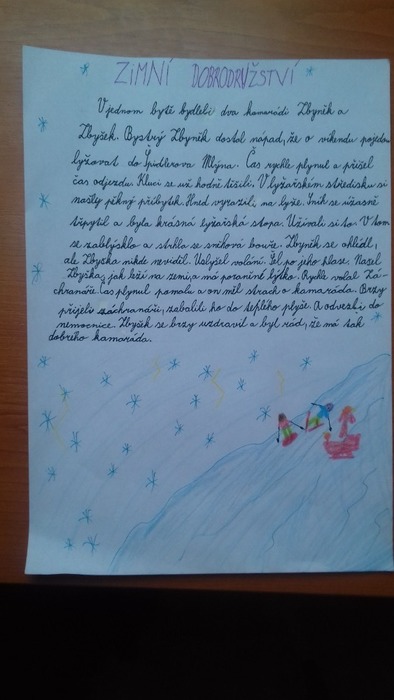 ZIMNÍ DOBRODRUŽSTVÍ
V jednom bytě bydleli dva kamarádi Zbyněk a
Zbyšek. Bystrý Zbyněk dostal nápad, že o víkendu pojedou
lyžovat do Špidlerova Mlýna. Čas rychle plynul a přišel
čas odjezdu. Kluci se už hodně těšili. V lyžařském středisku si
našly pěkný příbytek. Hned vyrazili, na lyže. Sníh se úžasně
třpytil a byla krásná lyžařská stopa. Užívali si to. V tom
se zablýsklo a strhla se sněhová bouře. Zbyněk se ohlédl,
ale Zbyška nikde neviděl. Uslyšel volání. Šel po jeho hlase. Našel
Zbyška, jak leží na zemi, a má poraněné lýtko. Rychle volal Zá-
chranáře. Čas plynul pomalu a on měl strach o kamaráda. Brzy
přijeli záchranáři, zabalili ho do teplého plyše. A odvezli do
nemocnice. Zbyšek se brzy uzdravil a byl rád, že má tak
dobrého kamaráda.